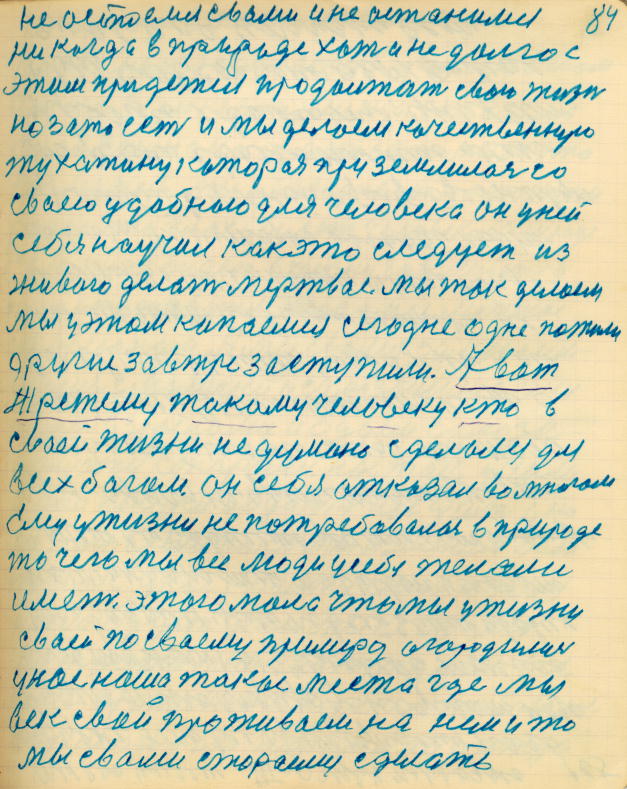 84
не остаемся свами и не останимся
никогда в природе хотя недолго с
этим придется продолжат свою жизн
но зато ест и мы делаем качественную
тухатину которая приземлилася со
своею удобною для человека он у ней
себя научил как это следует из
живого делат мертвае мы так делаем
мы у этом купаемся сегодне одне пожили
другие завтре заступили. А вот
Третему такому человеку кто в
своей жизни не думано сделался для
всех багом он себя отказал вомногом
Ему у жизни не потребавалося в природе
то чего мы все люди у себя желали
имет. этого мала что мы у жизни
своей по своему примеру огородились
у нас наша такое места где мы
век свой проживаем на нем и то
мы свами стараемся сделать